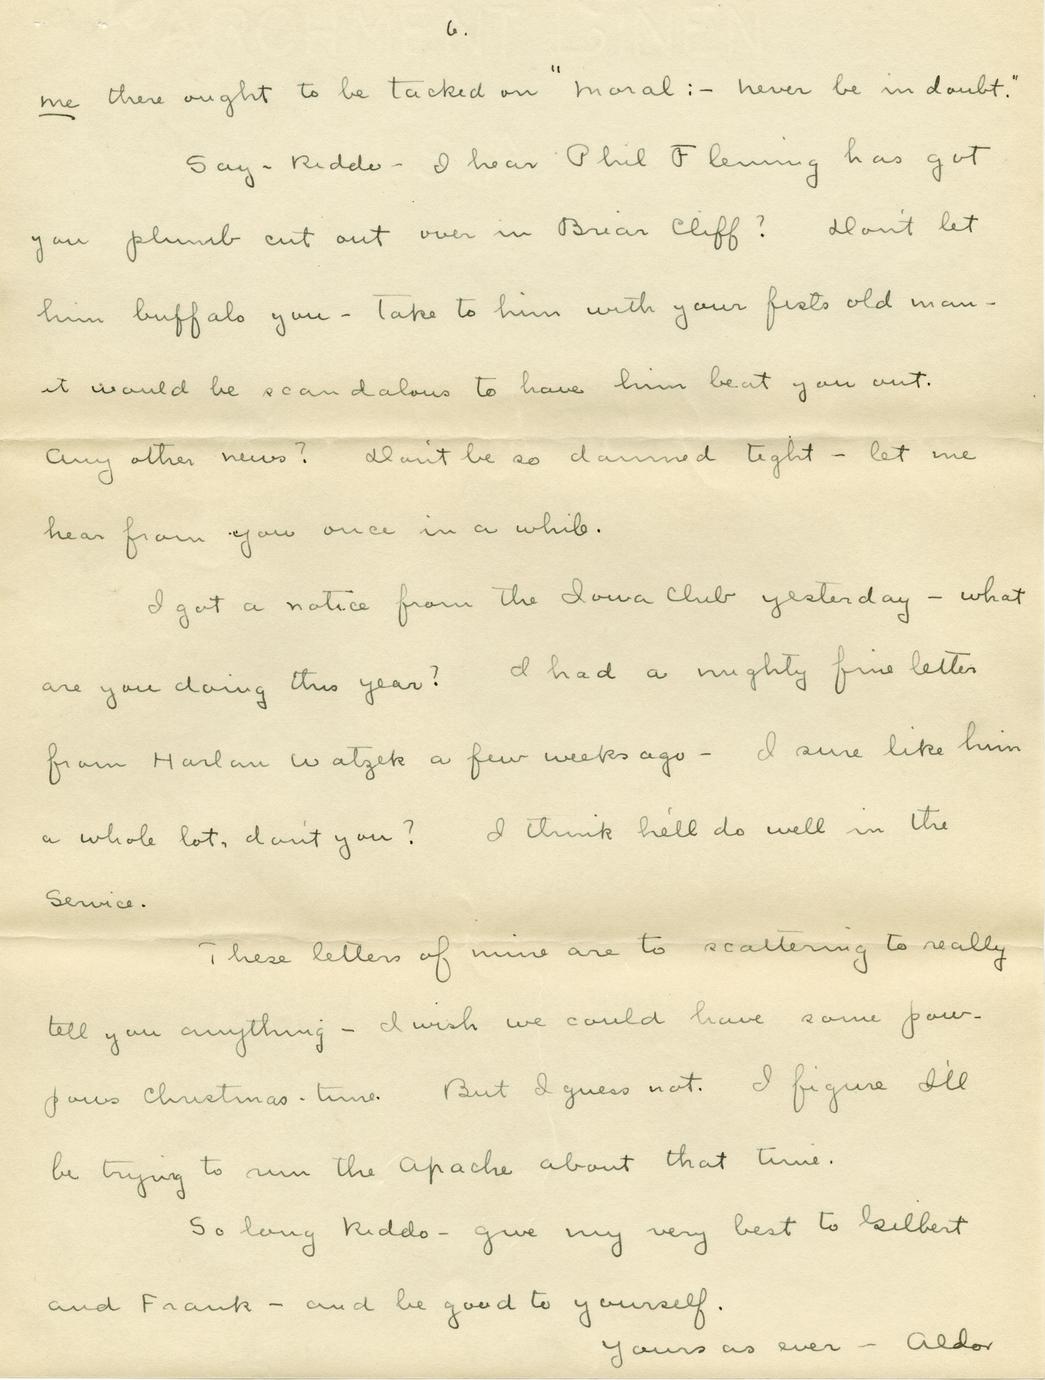 6.
me there ought to be tacked on "Moral:- never be in doubt."
Say - Kiddo - I hear Phil Fleming has got
you plumb cut out over in Briar Cliff? Don't let
him buffalo you - Take to him with your fists old man -
it would be scandalous to have him beat you out.
Any other news? Don't be so damned tight - let me
hear from you once in a while.
I got a notice from the Iowa Club yesterday - what
are you doing this year? I had a mighty fine letter
from Harlan Watzek a few weeks ago - I sure like him
a whole lot, don't you? I think he'll do well in the
Service.
These letters of mine are to scattering to really
tell you anything - I wish we could have some pow-
pows Christmas-time. But I guess not. I figure I'll
be trying to run the Apache about that time.
So long Kiddo - give my very best to Gilbert
and Frank - and be good to yourself.
Yours as ever - Aldo